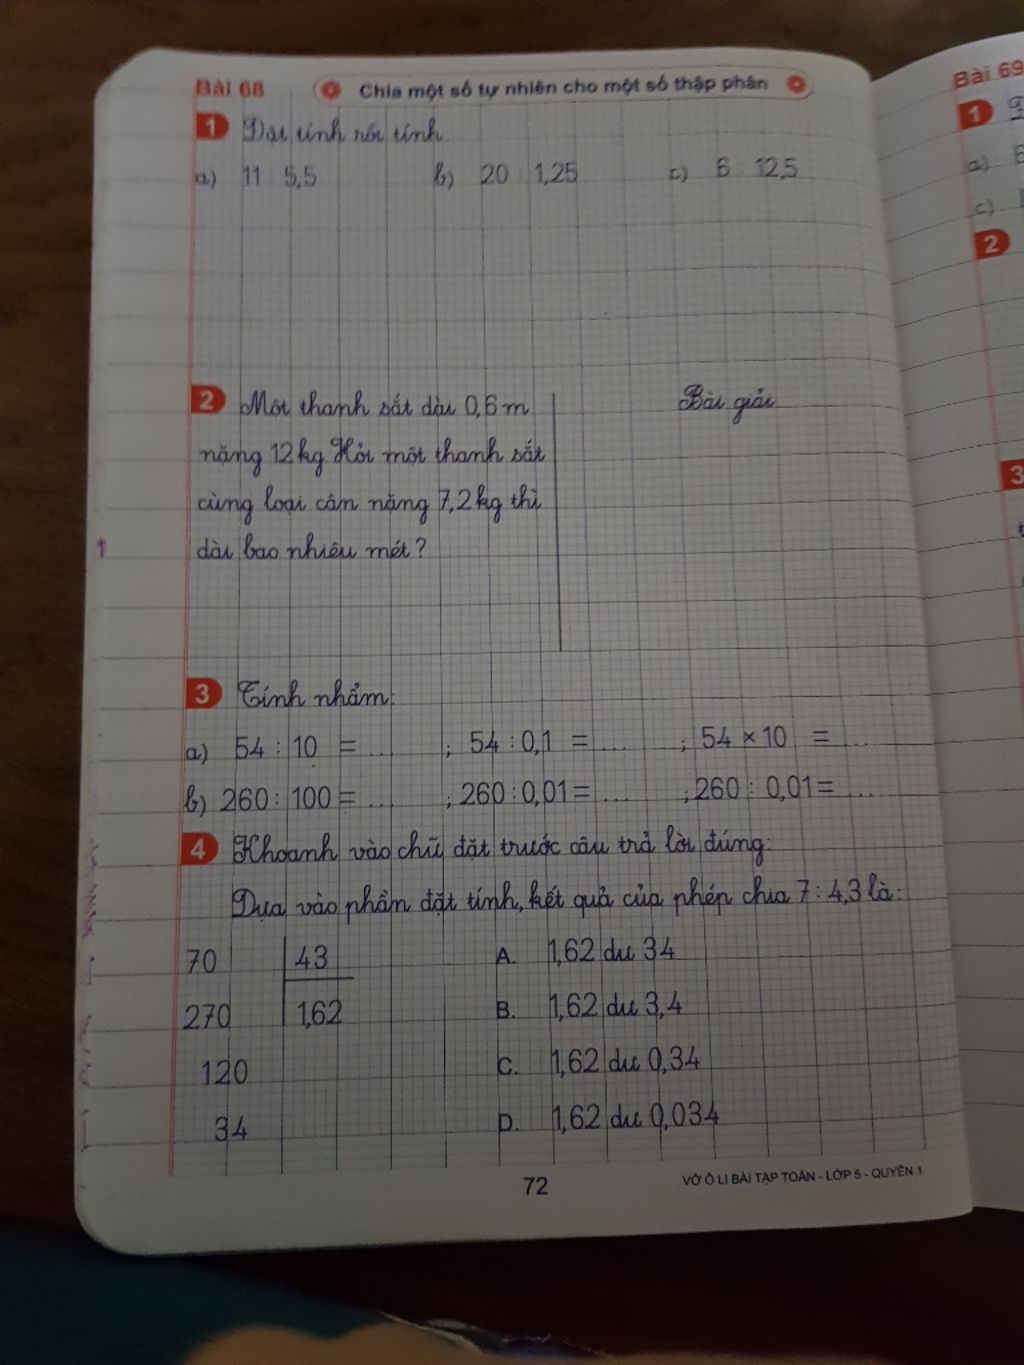 Bài 68 Chia một số tự nhiên cho một số thập phân
1 Đặt tính rồi tính.
a) 11 : 5,5 b) 20 : 1,25 c) 6 : 12,5
2 Một thanh sắt dài 0,6 m
nặng 12 kg. Hỏi một thanh sắt
cùng loại cân nặng 7,2 kg thì
dài bao nhiêu mét?
Bài giải
3 Tính nhẩm:
a) 54 : 10 = ... ; 54 : 0,1 = ... ; 54 × 10 = ...
b) 260 : 100 = ... ; 260 : 0,01 = ... ; 260 : 0,01 = ...
4 Khoanh vào chữ đặt trước câu trả lời đúng:
Dựa vào phần đặt tính, kết quả của phép chia 7 : 4,3 là:
70 43 A. 1,62 dư 34
270 1,62 B. 1,62 dư 3,4
120 C. 1,62 dư 0,34
34 D. 1,62 dư 0,034
72 VỞ Ô LI BÀI TẬP TOÁN - LỚP 5 - QUYỂN 1
Bài 69
1
a)
c)
2
3